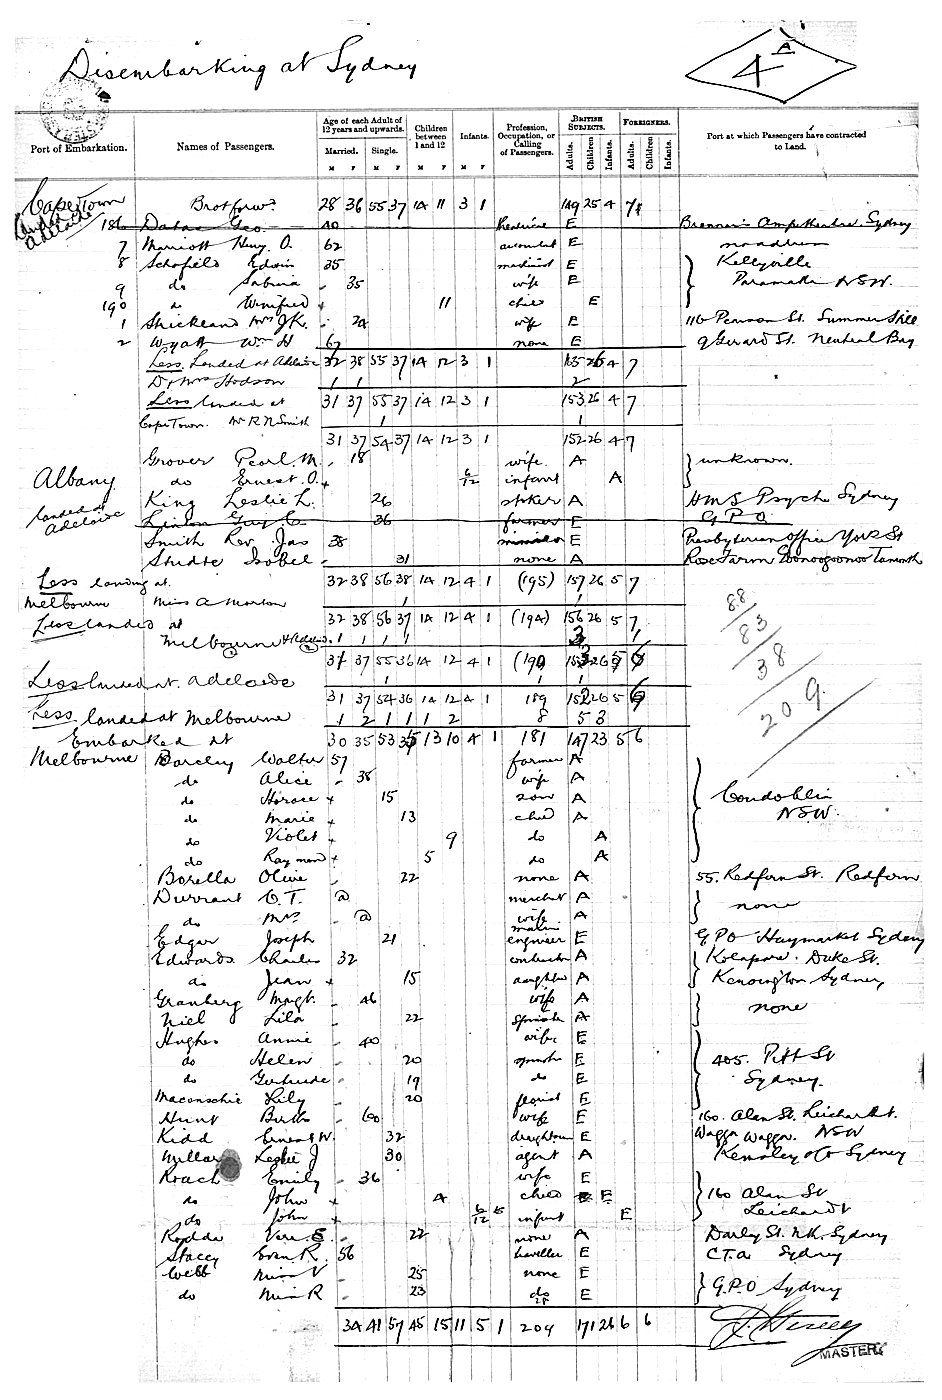 Disembarking at Sydney
4 A
Port of Embarkation.
Names of Passengers.
Age of each Adult of 12 years and upwards.
Married. Single.
M F M F
Children between 1 and 12
M F
Infants.
M F
Profession, Occupation, or Calling of Passengers.
BRITISH SUBJECTS.
Adults. Children Infants.
FOREIGNERS.
Adults. Children Infants.
Port at which Passengers have contracted to Land.
Cape Town Brot forwd 28 36 55 37 14 11 3 1 149 25 4 7
Adelaide
186 Geo. 40 E Sydney
7 Marriott Henry O. 62 accountant E no address
8 Schofield Edwin 35 machinist E Kellyville
9 do Sabina 35 wife E Paramatta NSW.
190 do Winifred 11 child E
1 Strickland Mrs J.K. 24 wife E 116 St. Summer Hill
2 Wyatt Wm H 67 none E 9 Gerard St. Neutral Bay
Less Landed at Adelaide 32 38 55 37 14 12 3 1 155 26 4 7
Dr & Mrs Hodson 1 1 2
Less landed at 31 37 55 37 14 12 3 1 153 26 4 7
Cape Town. Mr R N Smith 1 1
31 37 54 37 14 12 3 1 152 26 4 7
Grover Pearl. M. 18 wife A unknown.
Albany do Ernest. O. 6/12 infant A
King Leslie L. 26 stoker A HMS Psyche Sydney
landed at Adelaide Linton Guy C. 36 farmer E G.P.O.
Smith Rev. Jas 38 E Presbyterian Office York St
Studte Isobel 31 none A Rose Farm Tamworth
Less landing at 32 38 56 38 14 12 4 1 (195) 157 26 5 7
Melbourne Miss A Morton 1 1
Less landed at 32 38 56 37 14 12 4 1 (194) 156 26 5 7
Melbourne 1 1 1 1 3 1
31 37 55 36 14 12 4 1 (190) 153 26 5 6
Less landed at Adelaide 1 1 1
31 37 54 36 14 12 4 1 189 152 26 5 6
Less landed at Melbourne 1 2 1 1 1 2 8 5 3
Embarked at 30 35 53 35 13 10 4 1 181 147 23 5 6
88
83
38
209.
Melbourne Barclay Walter 57 farmer A
do Alice 38 wife A
do Horace 15 son A Condoblin
do Marie 13 child A NSW.
do Violet 9 do A
do Raymond 5 do A
Borella Olive 22 none A 55. Redfern St. Redfern
Durrant O.T. @ merchant A none
do Mrs @ wife A
Edgar Joseph 21 marine engineer E G.P.O Haymarket Sydney
Edwards Charles 32 contractor A Kolapore. Duke St.
do Jean 15 daughter A Kensington Sydney
Granberg Magt. 46 wife A none
Niel Lila 22 spinster A
Hughes Annie 40 wife E
do Helen 20 spinster E 405. Pitt St
do Gertrude 19 do E Sydney.
Maconochie Lily 20 florist E
Hunt Bertha 60 wife E 160. Alan St. Leichardt.
Kidd Ernest W. 32 draughtsman E Wagga Wagga. NSW
Millar Leslie J 30 agent A Sydney
Roach Emily 36 wife E
do John 4 child E 160 Alan St
do John 6/12 infant E Leichardt
Rodda Vera E 22 none A Darley St. Nth. Sydney
Stacey Evan R. 56 traveller E C.T.A Sydney
Webb Miss V 25 none E
do Miss R 23 do E G.P.O Sydney
34 41 57 45 15 11 5 1 209 171 26 6 6
MASTER.